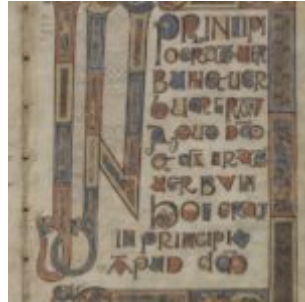 IN PRINCIPI
O ERAT UER
BUM & UER
BUM ERAT
APUD DM̄
& DS̄ ERAT
UERBUM
HOC ERAT
IN PRINCIPIO
APUD DM̄